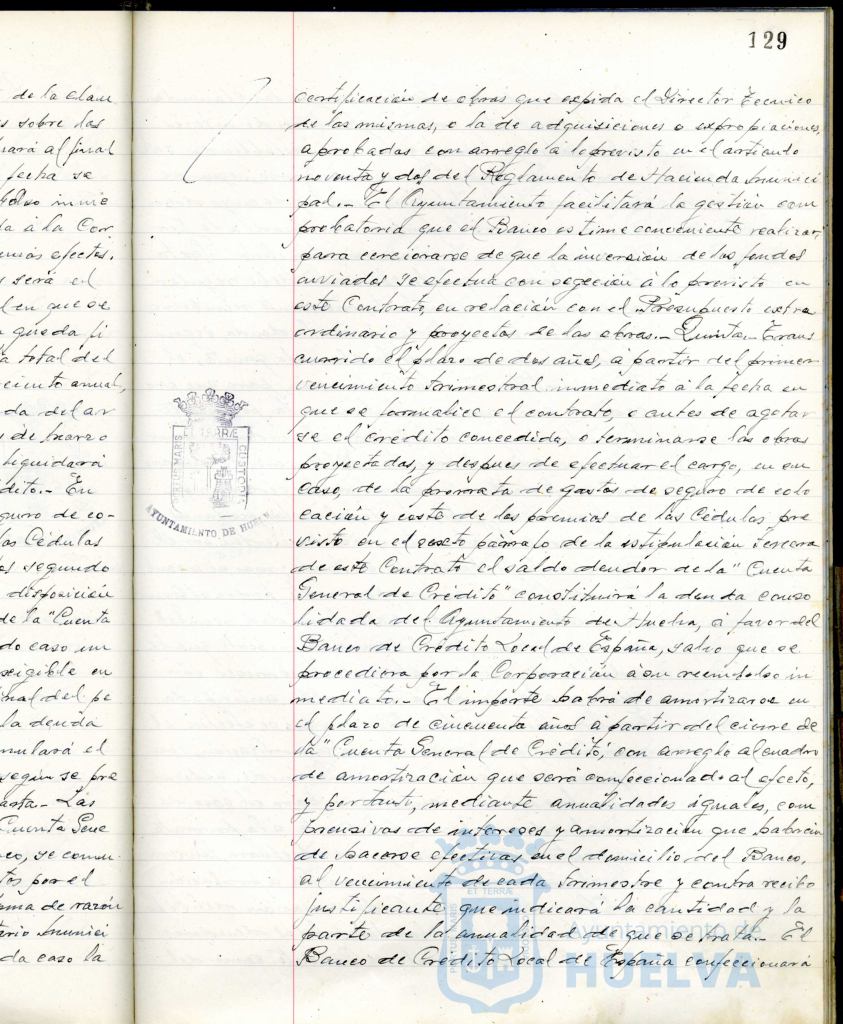 129
de la clau
s sobre las
ará al final
fecha se
olso inme
da á la Cor
efectos.
s será el
en que se
queda fi
a total del
anual,
da del ar
de marzo
liquidará
dito.- En
guro de co-
las Cédulas
segundo
disposición
de la "Cuenta
do caso un
exigible en
nal del pe
la deuda
mulará el
segun se pre
Las
Cuenta Gene
co, se comu
tos por el
ma de razón
erio Munici
da caso la
certificación de obras que expida el Director Tecnico
de las mismas, o la de adquisiciones o expropiaciones,
aprobadas con arreglo á lo previsto en el articulo
noventa y dos del Reglamento de Hacienda Munici
pal.- El Ayuntamiento facilitará la gestión com
probatoria que el Banco estime conveniente realizar,
para cerciorarse de que la inversión de los fondos
enviados se efectua con segeción á lo previsto en
este Contrato, en relación con el Presupuesto extra
ordinario y proyectos de las obras.- Quinta.- Trans
currido el plazo de dos años, á partir del primer
vencimiento trimestral inmediato á la fecha en
que se formalice el contrato, o antes de agotar
se el crédito concedido, o terminarse las obras
proyectadas, y despues de efectuar el cargo, en su
caso, de la prorrata de gastos de seguro de colo
cación y coste de los premios de las Cédulas, pre
visto en el sexto párrafo de la estipulación tercera
de este Contrato el saldo deudor de la "Cuenta
General de Crédito" constituirá la deuda conso
lidada del Ayuntamiento de Huelva, á favor del
Banco de Crédito Local de España, salvo que se
procediera por la Corporación á su reembolso in
mediato.- El importe habrá de amortizarse en
el plazo de cincuenta años á partir del cierre de
la "Cuenta General de Crédito", con arreglo al cuadro
de amortización que será confeccionado al efecto,
y por tanto, mediante anualidades iguales, com
prensivas de intereses y amortización que habrán
de hacerse efectivas en el domicilio del Banco,
al vencimiento de cada trimestre y contra recibo
justificante que indicará la cantidad y la
parte de la anualidad de que se trata.- El
Banco de Crédito Local de España confeccionará
ET TERRÆ
PORTUS MARIS
CUSTODIA
AYUNTAMIENTO DE HUELVA
ET TERRÆ
PORTUS MARIS
Ayuntamiento de
HUELVA